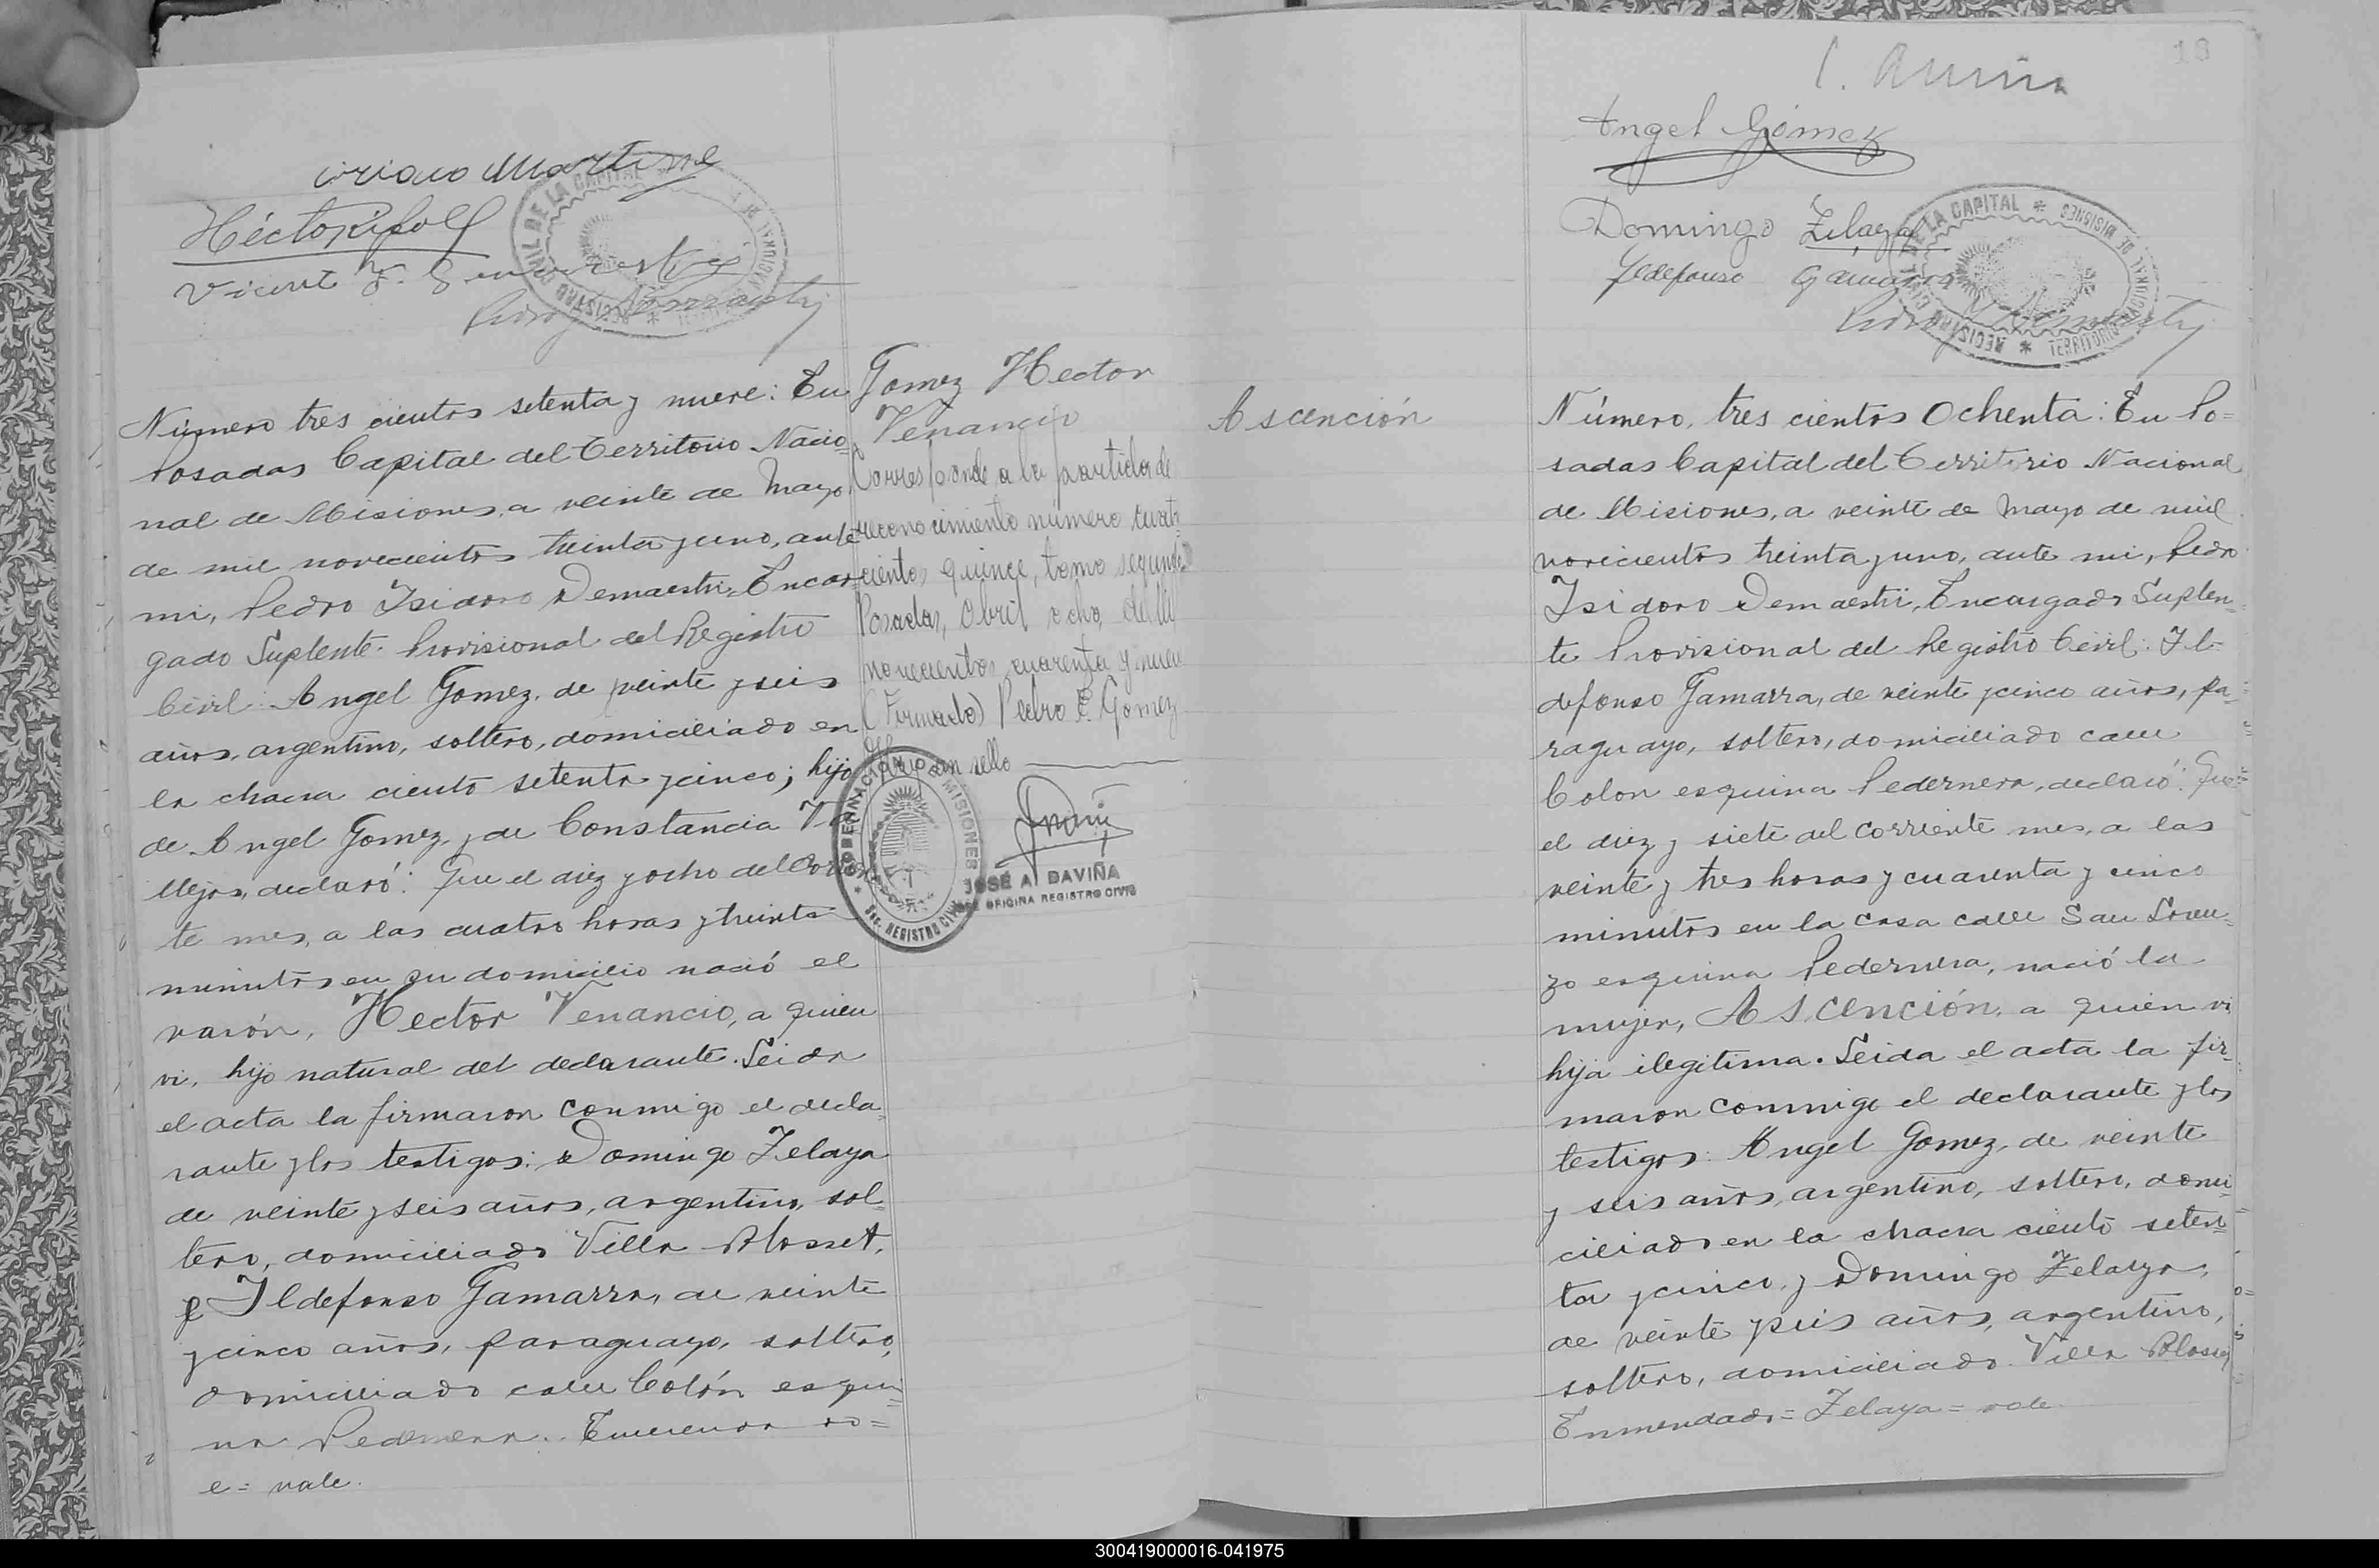 Ciriaco Martinez
Héctor
Vicente F.
Pedro I. Demaestri
REGISTRO CIVIL DE LA CAPITAL
Número tres cientos setenta y nueve: En
Posadas Capital del Territorio Nacio=
nal de Misiones, a veinte de Mayo
de mil novecientos treinta y uno, ante
mi, Pedro Isidoro Demaestri, Encar-
gado Suplente Provisional del Registro
Civil: Angel Gomez, de veinte y seis
años, argentino, soltero, domiciliado en
la chacra ciento setenta y cinco; hijo
de Angel Gomez, y de Constancia Va
llejos, declaró: Que el diez y ocho del corrien
te mes, a las cuatro horas y treinta
minutos en su domicilio nació el
varón, Hector Venancio, a quien
vi, hijo natural del declarante. Leida
el acta la firmaron conmigo el decla=
rante y los testigos: Domingo Zelaya
de veinte y seis años, argentino, sol=
tero, domiciliado Villa Blosset,
é Ildefonso Gamarra, de veinte
y cinco años, paraguayo, soltero,
domiciliado calle Colón esqui=
na Pedernera. Enmendado=
e= vale.
Gomez Hector
Venancio
Corresponde a la partida de
reconocimiento número cuatro
cientos quince, tomo segundo
Posadas, Abril ocho, de mil
novecientos cuarenta y nueve
(Firmado) Pedro E. Gomez
Hay un sello
GOBERNACION MISIONES
REGISTRO CIVIL
JOSÉ A. DAVIÑA
JEFE OFICINA REGISTRO CIVIL
18
Angel Gómez
Domingo Zelaya
Yldefonso Gamarra
Pedro I. Demaestri
REGISTRO CIVIL DE LA CAPITAL * TERRITORIO NACIONAL DE MISIONES *
Ascención
Número, tres cientos Ochenta: En Po=
sadas Capital del Territorio Nacional
de Misiones, a veinte de Mayo de mil
novecientos treinta y uno, ante mi, Pedro
Isidoro Demaestri, Encargado Suplen=
te Provisional del Registro Civil: Il-
defonso Gamarra, de veinte y cinco años, pa=
raguayo, soltero, domiciliado calle
Colon esquina Pedernera, declaró: Que
el diez y siete del corriente mes, a las
veinte y tres horas y cuarenta y cinco
minutos en la casa calle San Loren=
zo esquina Pedernera, nació la
mujer, Ascención, a quien vi
hija ilegitima. Leida el acta la fir=
maron conmigo el declarante y los
testigos: Angel Gomez, de veinte
y seis años, argentino, soltero, domi=
ciliado en la chacra ciento seten=
ta y cinco, y Domingo Zelaya,
de veinte y seis años, argentino,
soltero, domiciliado Villa Blosset
Enmendado= Zelaya= vale.
300419000016-041975